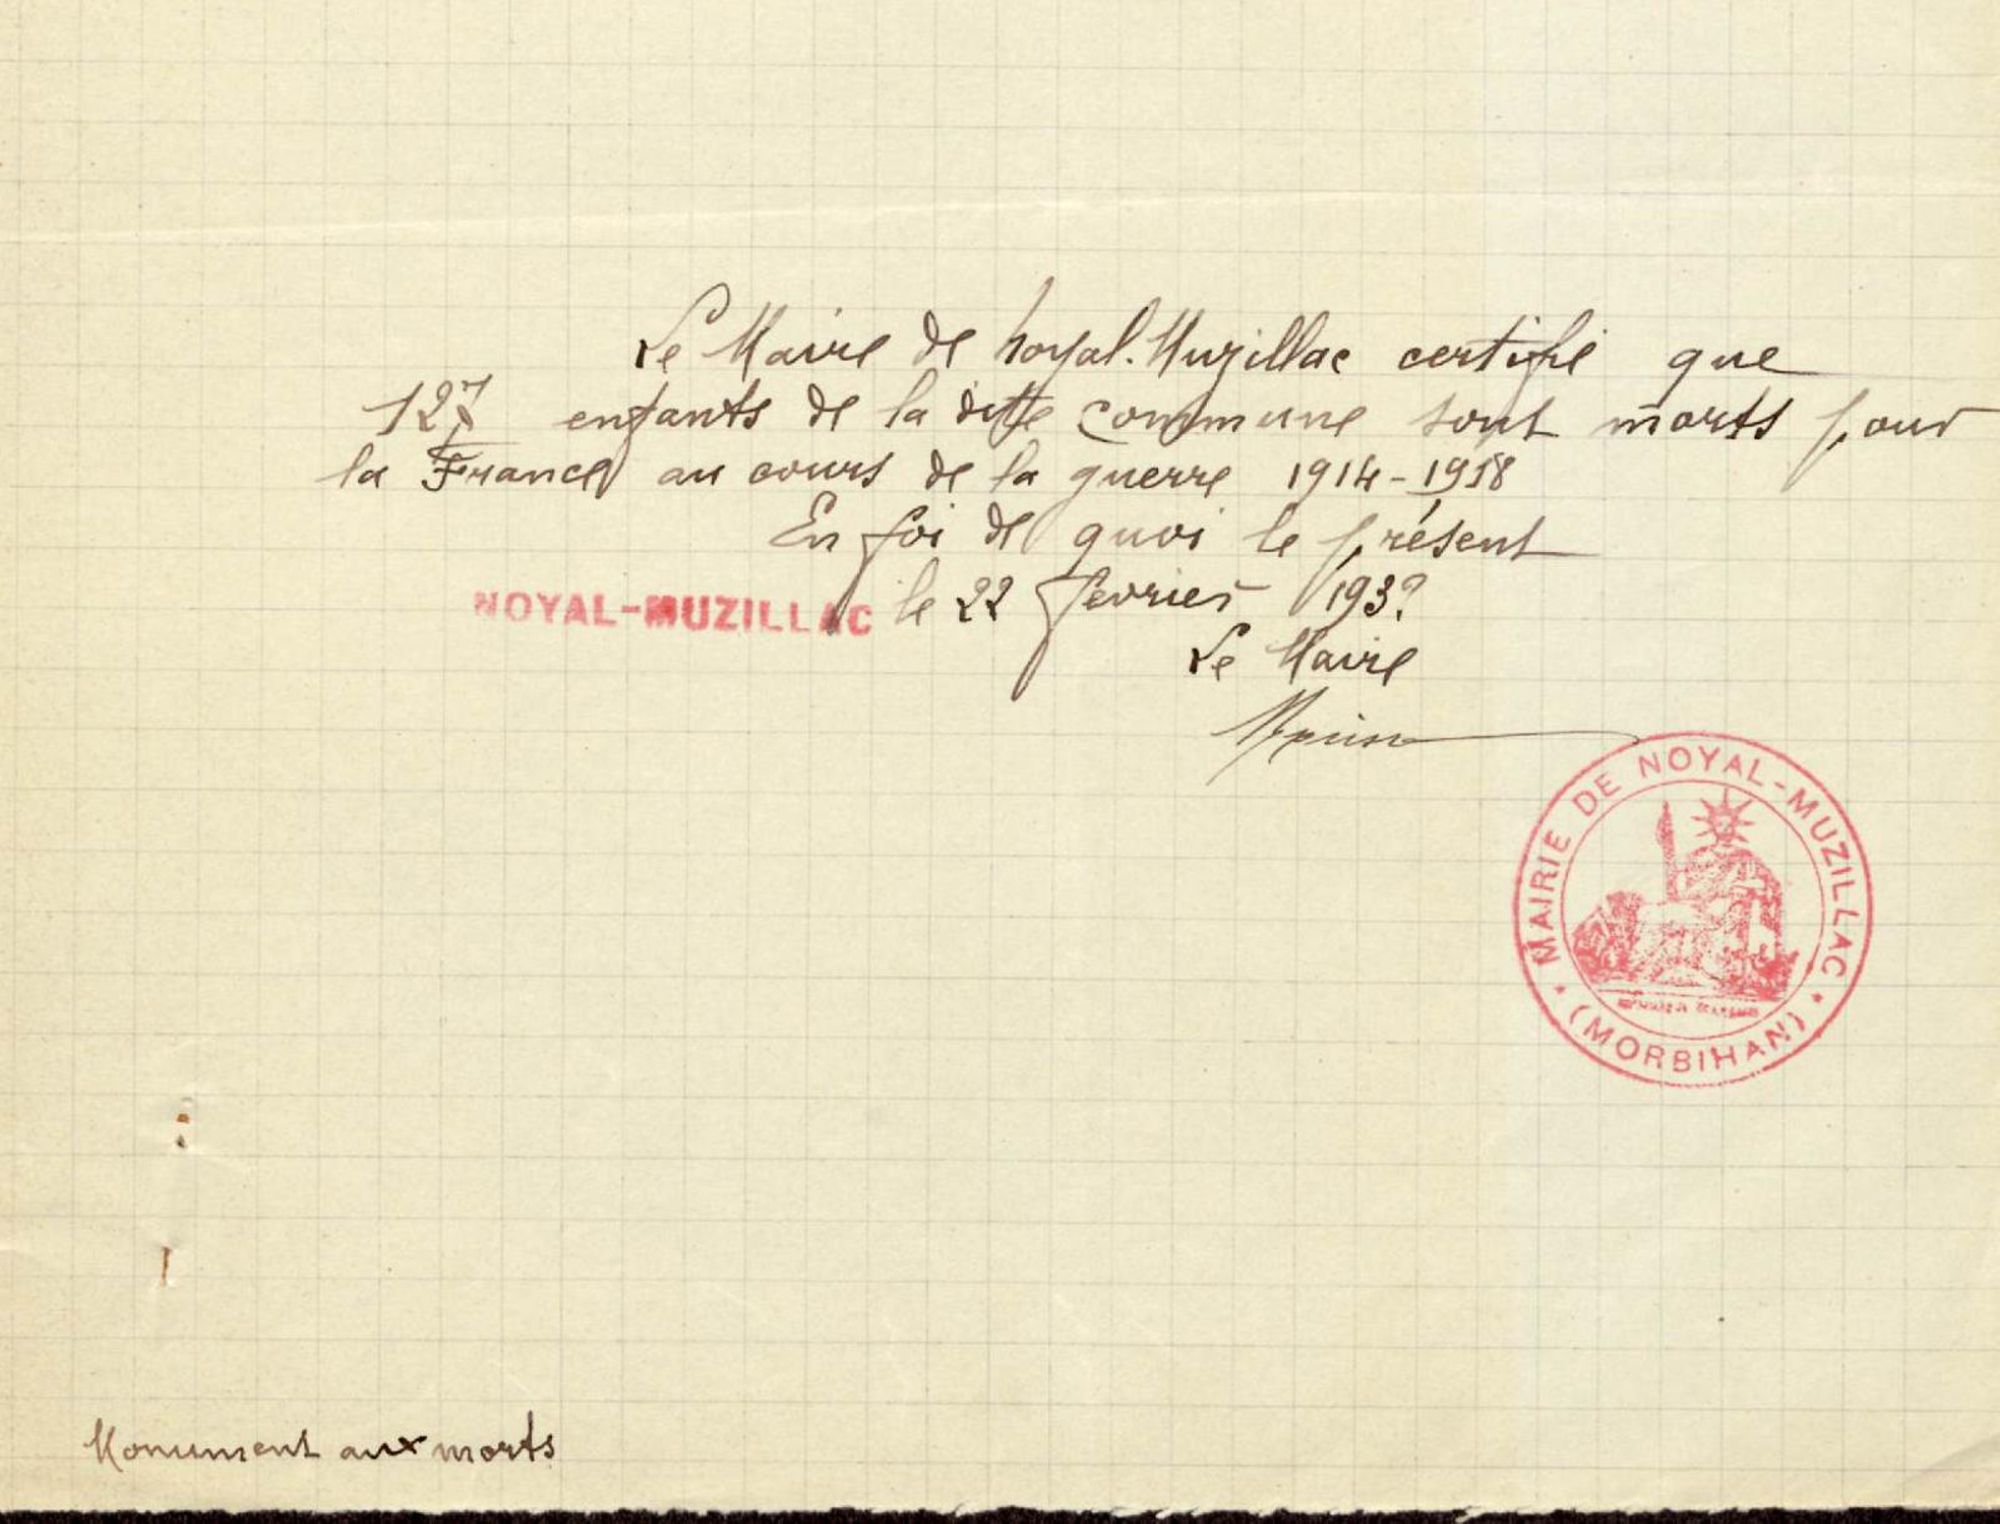 Le Maire de Noyal-Muzillac certifie que
127 enfants de la ditte commune sont morts pour
la France au cours de la guerre 1914-1918
En foi de quoi le présent
NOYAL-MUZILLAC le 22 fevrier 193?
Le Maire
MAIRIE DE NOYAL-MUZILLAC
(MORBIHAN)
Monument aux morts